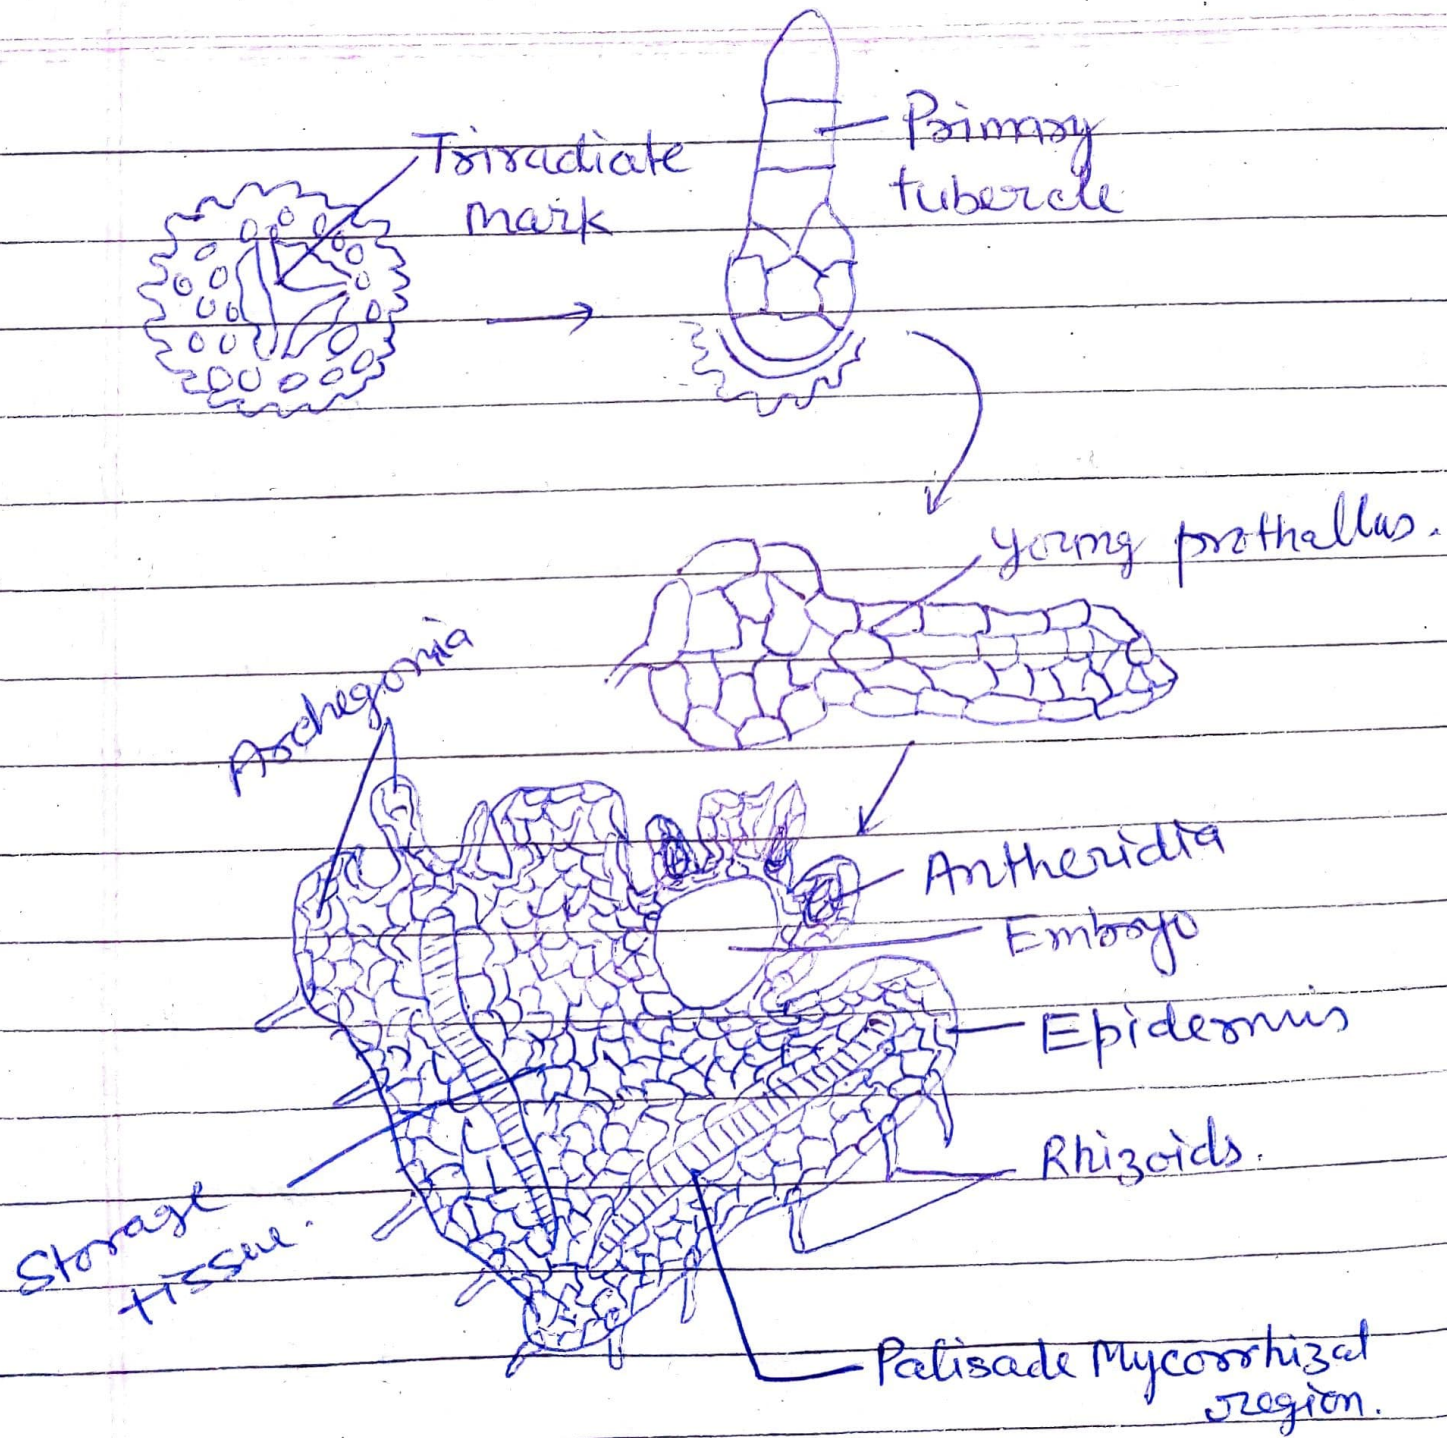 Triradiate
mark
Primary
tubercle
young prothallus.
Archegonia
Antheridia
Embryo
Epidermis
Rhizoids.
Storage
tissue.
Palisade Mycorrhizal
region.